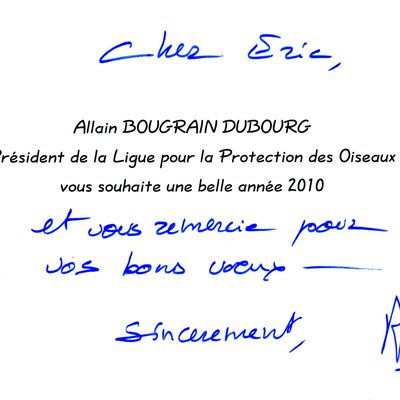 Cher Eric,
Allain BOUGRAIN DUBOURG
Président de la Ligue pour la Protection des Oiseaux
vous souhaite une belle année 2010
et vous remercie pour
vos bons voeux —
Sincerement,